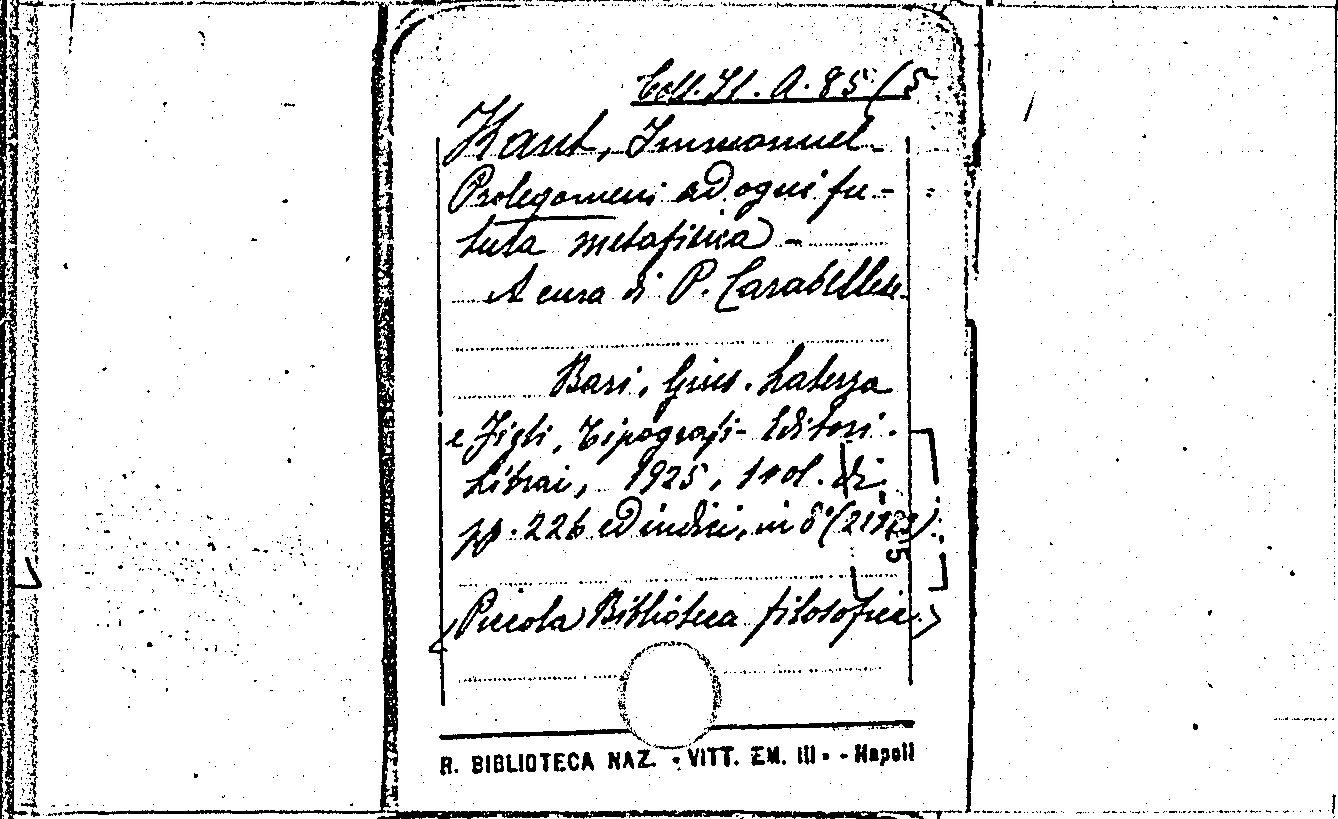 Coll. It. A. 85 (5
Kant, Immanuel -
Prolegomeni ad ogni fu-
tura metafisica -
A cura di P. Carabellese.
Bari, Gius. Laterza
e Figli, Tipografi-Editori.
Librai, 1925, 1 vol. di
pp. 226 ed indici, in 8°
(Piccola Biblioteca filosofica)
R. BIBLIOTECA NAZ. - VITT. EM. III - - Napoli